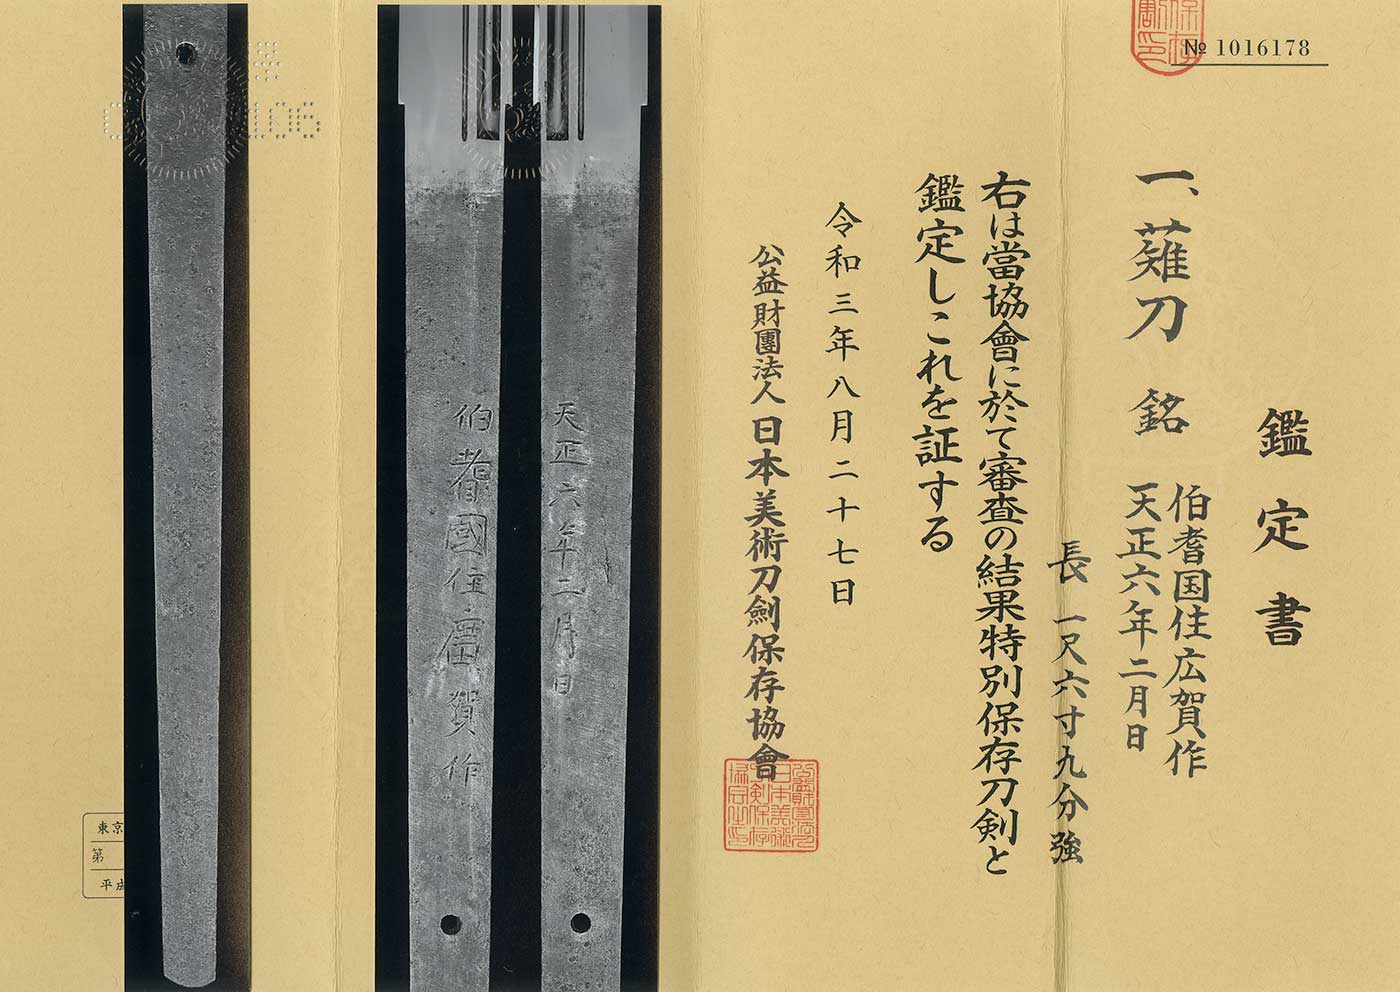 № 1016178
鑑定書
一、薙刀 銘 伯耆国住広賀作
天正六年二月日
長 一尺六寸九分強
右は當協會に於て審査の結果特別保存刀剣と
鑑定しこれを証する
令和三年八月二十七日
公益財團法人 日本美術刀劍保存協會
天正六年二月日
伯耆國住廣賀作
東京
第
平成